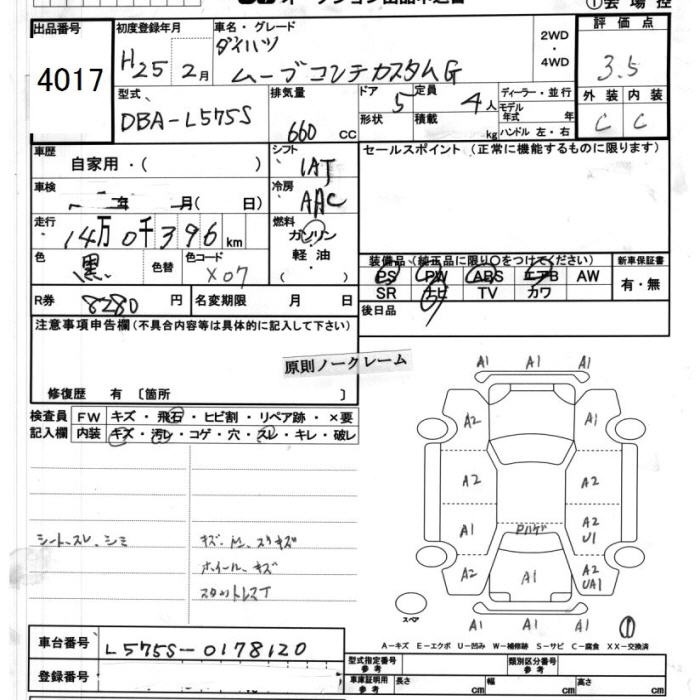 ①会場控
出品番号 初度登録年月 車名・グレード 評価点
4017 H25 2月 ダイハツ
ムーブコンテカスタムG
2WD
・
4WD
3.5
型式 排気量 ドア 定員 ディーラー・並行 外装 内装
DBA-L575S 660 cc 5 4人 モデル
年式 年
C C
形状 積載 kg ハンドル 左・右
車歴 自家用・( ) シフト IAT セールスポイント (正常に機能するものに限ります)
車検 年 月( 日) 冷房 AAC
走行 14万0千396km 燃料 ガソリン
軽油
( )
色 黒 色替 色コード X07
装備品 (純正品に限り○をつけてください) 新車保証書
PS PW ABS エアB AW 有・無
SR ナビ TV カワ
R券 8280円 名変期限 月 日 後日品
注意事項申告欄(不具合内容等は具体的に記入して下さい)
原則ノークレーム
修復歴 有〔箇所 〕
検査員 FW キズ・飛石・ヒビ割・リペア跡・×要
記入欄 内装 キズ・汚レ・コゲ・穴・スレ・キレ・破レ
シートスレ、シミ
ホイールキズ
スタットレスT
A1 A1 A1
A2 A1
A2 A2
A1 A2
U1
A2 A1 A2
UA1
スペア A1 A1 A1
A-キズ E-エクボ U-凹み W-補修跡 S-サビ C-腐食 XX-交換済
車台番号 L575S-0178120
登録番号
型式指定番号
参考
類別区分番号
参考
車庫証明用
参考
長さ cm 幅 cm 高さ cm